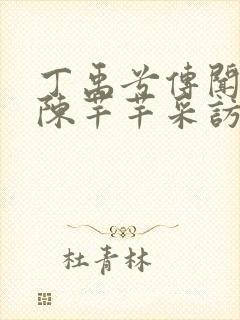 丁禹兮傳聞
陳芊芊采訪
杜青林